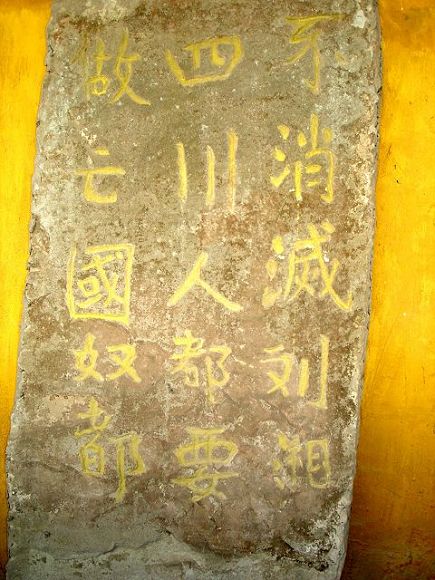 不消滅刘湘
四川人都要
做亡國奴都